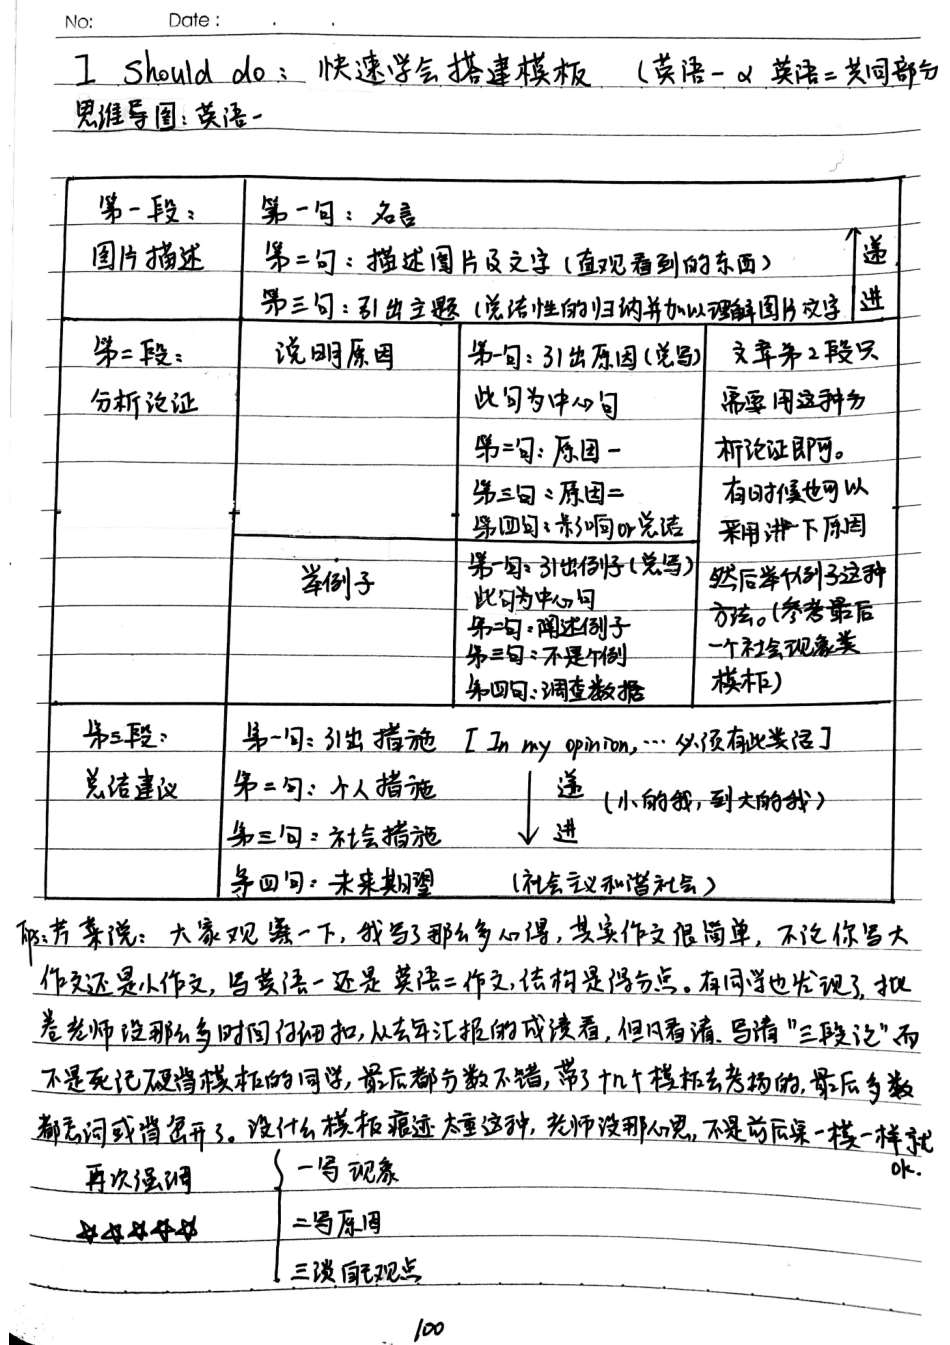 No: Date:
I should do: 快速学会搭建模板 (英语一 & 英语二共同部分
思维导图:英语一
第一段: 第一句:名言
图片描述 第二句:描述图片及文字(直观看到的东西) 递
第三句:引出主题(总结性的归纳并加以理解图片文字 进
第二段: 说明原因 第一句:引出原因(总写) 文章第2段只
分析论证 此句为中心句 需要用这种分
第二句:原因一 析论证即可。
第三句:原因二 有时候也可以
第四句:影响or总结 采用讲一下原因
举例子 第一句:引出例子(总写) 然后举个例子这种
此句为中心句 方法。(参考最后
第二句:阐述例子 一个社会现象类
第三句:不是个例 模板)
第四句:调查数据
第三段: 第一句:引出措施 [In my opinion,… 必须有此类语]
总结建议 第二句:个人措施 递 (小的我,到大的我)
第三句:社会措施 进
第四句:未来期望 (社会主义和谐社会)
ps:芹菜说:大家观察一下,我写了那么多心得,其实作文很简单,不论你写大
作文还是小作文,写英语一还是英语二作文,结构是得分点。有同学也发现了,批
卷老师没那么多时间仔细扣,从去年汇报的成绩看,但凡看清、写清“三段论”而
不是死记硬背模板的同学,最后都分数不错,带了十几个模板去考场的,最后多数
都忘词或背岔开了。没什么模板痕迹太重这种,老师没那心思,不是前后桌一模一样就
ok.
再次强调 一写现象
☆☆☆☆☆ 二写原因
三谈自己观点
100